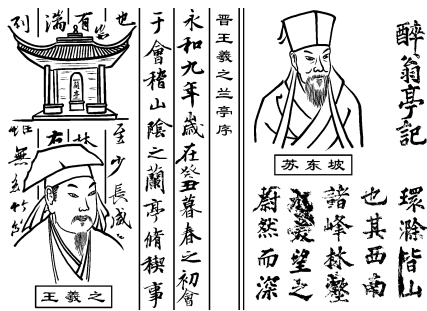 醉翁亭記
苏东坡
環滁皆山
也其西南
諸峰林壑
望之
蔚然而深
晋王羲之兰亭序
永和九年歲在癸丑暮春之初會
于會稽山陰之蘭亭脩稧事
也
有
湍
列
蘭亭
至少長咸
無
王羲之